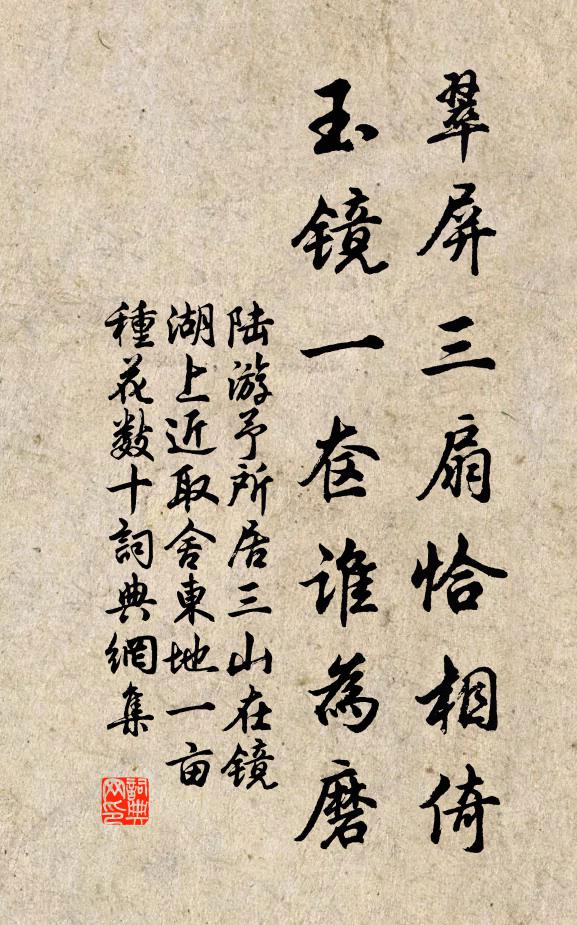 翠屏三扇恰相倚
玉镜一奁谁為磨
陆游予所居三山在镜
湖上近取舍東地一亩
種花数十詞典網集
詞典
网印